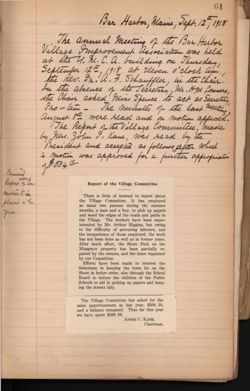 61
Bar Harbor, Maine, Sept. 12th 1918
The annual Meeting of the Bar Harbor
Village Improvement Association was held
at the Y. M. C. A. building on Thursday,
September 12th, 1918 at eleven o'clock a.m.,
the Rev. Dr. A. F. Schauffler, in the chair.
In the absence of the Secretary, Mr.
the Chair asked Miss to act as Secretary
Pro-tem. The minutes of the last meeting
August 8th were read and on motion approved.
The Report of the Village Committee, made
by Mrs. John I. Kane, was read by the
President and accepted as follows, after which
a motion was approved for a further appropriation
of
Report of the Village Committee
There is little of interest to report about
the Village Committee. It has employed
as usual two persons during the summer
months, a man and a boy, to pick up papers
and meet the edges of the roads and paths in
the Village. The workers have been super-
intended by Mr. Arthur Higgins, but owing
to the difficulty of procuring laborers, and
the inexperience of those employed, the work
has not been done as well as in former years.
After much effort, the Shore Path on the
Musgrave property has been partially re-
paired by the owners, and the fence repainted
by our Committee.
Efforts have been made to interest the
Salesmen in keeping the town lot on the
Shore in better order, also through the School
Board to induce the children of the Public
Schools to aid in picking up papers and keep-
ing the streets tidy.
The Village Committee has asked for the
same appropriation as last year,
and a balance remained. Thus far this year
we have spent
Annie C. Kane,
Chairman.